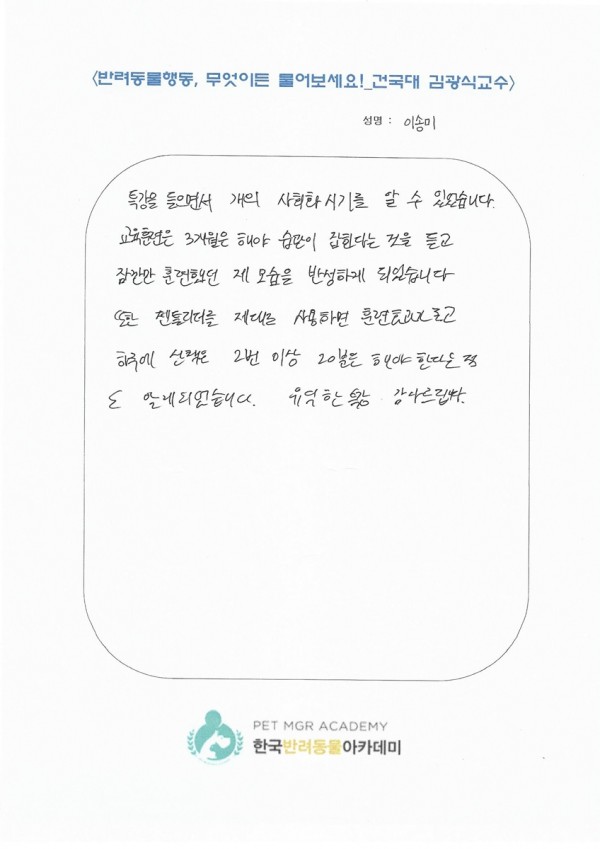 <반려동물행동, 무엇이든 물어보세요!_건국대 김광식교수>
성명 : 이송미
특강을 들으면서 개의 사회화시기를 알 수 있었습니다.
교육훈련은 3개월은 해야 습관이 잡힌다는 것을 듣고
잠깐만 훈련했던 제 모습을 반성하게 되었습니다
또한 젠틀리더를 제대로 사용하면 훈련효과가 좋고
하루에 산책은 2번 이상 20분은 해야 한다는 것
도 알게되었습니다. 유익한 특강 감사드립니다.
PET MGR ACADEMY
한국반려동물아카데미